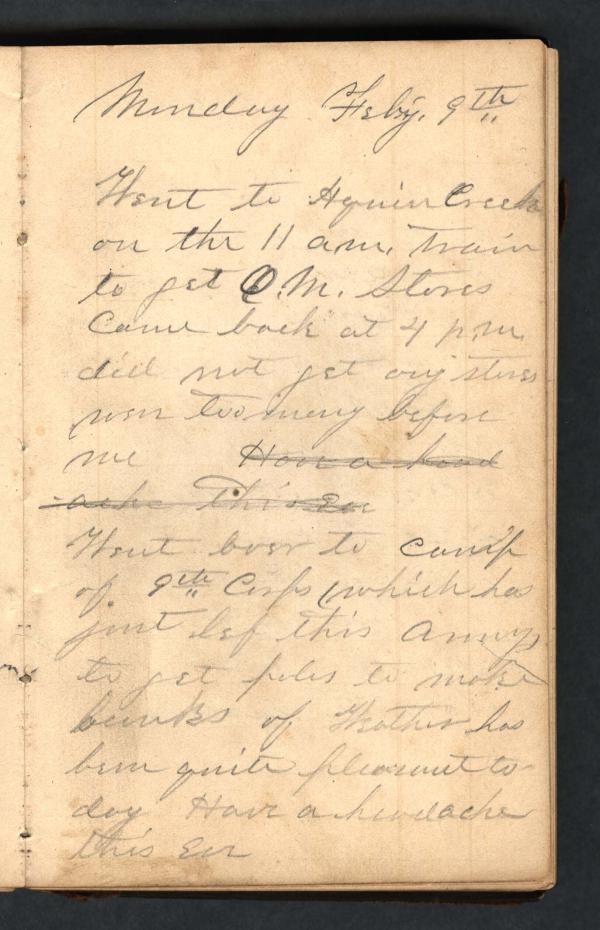 Monday Feby. 9th
Went to Aquia Creek
on the 11 a.m. train
to get Q.M. Stores
Came back at 4 p.m.
did not get any stores
were too many before
me Have a head
ache This Eve
Went over to camp
of 9th Corps (which has
just lef this Army)
to get poles to make
bunks of Weather has
been quite pleasant to
day Have a headache
this Eve